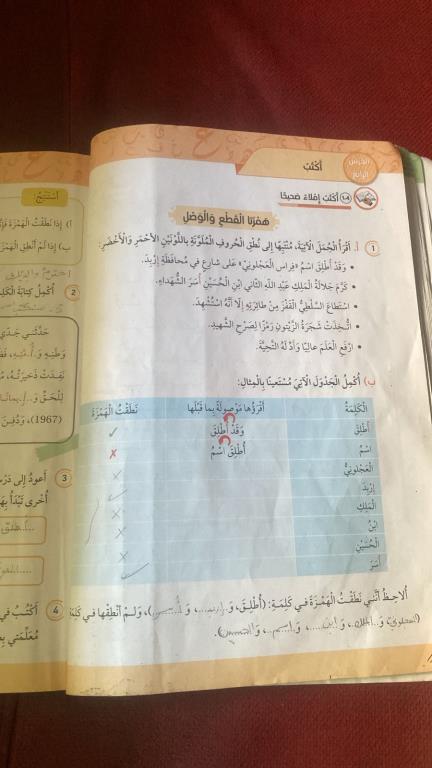 الدَّرْسُ الرّابِعُ
أَكْتُبُ
أَكْتُبُ إِمْلاءً صَحيحًا
هَمْزَتا القَطْعِ وَالْوَصْلِ
1 أ. أَقْرَأُ الْجُمَلَ الْآتِيَةَ، مُنْتَبِهًا إِلى نُطْقِ الْحُروفِ الْمُلَوَّنَةِ بِاللَّوْنَيْنِ الْأَحْمَرِ وَالْأَخْضَرِ:
• وَقَدْ أُطْلِقَ اسْمُ «فِراس الْعَجْلونِيّ» عَلى شارِعٍ في مُحافَظَةِ إِرْبِدَ.
• كَرَّمَ جَلالَةُ الْمَلِكِ عَبْدِ اللَّهِ الثّاني ابْنِ الْحُسَيْنِ أُسَرَ الشُّهَداءِ.
• اسْتَطاعَ السَّلْطِيُّ الْقَفْزَ مِنْ طائِرَتِهِ إِلّا أَنَّهُ اسْتُشْهِدَ.
• اتُّخِذَتْ شَجَرَةُ الزَّيْتونِ رَمْزًا لِصَرْحِ الشَّهيدِ.
• ارْفَعِ الْعَلَمَ عالِيًا وَأَدِّ لَهُ التَّحِيَّةَ.
ب) أُكْمِلُ الْجَدْوَلَ الْآتِيَ مُسْتَعينًا بِالْمِثالِ:
الْكَلِمَةُ أَقْرَؤُها مَوْصولَةً بِما قَبْلَها نَطَقْتُ الْهَمْزَةَ
أُطْلِقَ وَقَدْ أُطْلِقَ ✓
اسْمُ أُطْلِقَ اسْمُ ✗
الْعَجْلونِيُّ ✗
إِرْبِدَ ✓
الْمَلِكِ ✗
ابْنُ ✗
الْحُسَيْنِ ✗
أُسَرَ ✓
أُلاحِظُ أَنَّني نَطَقْتُ الْهَمْزَةَ في كَلِمَةِ: (أُطْلِقَ، وَ إربد، وَ أسر)، وَلَمْ أَنْطِقْها في كَلِمَةِ
(العجلوني، وَ الملك، وَ ابن، وَ اسم، وَ الحسين).
أَسْتَنْتِجُ:
أ) إِذا نَطَقْتُ الْهَمْزَةَ
ب) إِذا لَمْ أَنْطِقِ الْهَمْزَةَ
2 أُكْمِلُ كِتابَةَ
حَدَّثَني جَدّي
نَفِدَتْ ذَخيرَتُهُ،
(1967)، وَدُفِنَ
3 أَعودُ إِلى
أُخْرى تَبْدَأُ
4 أَكْتُبُ في